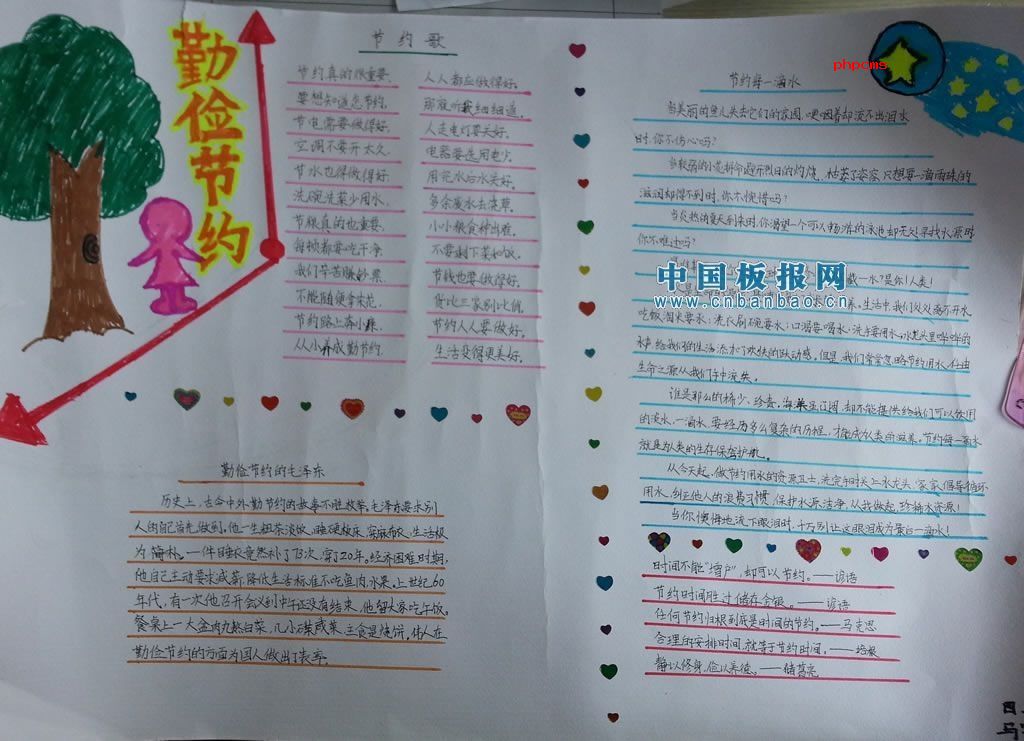 勤俭节约
节约歌
节约真的很重要,
要想知道怎节约,
节电需要做得好,
空调不要开太久,
节水也得做得好
洗碗洗菜少用水,
节粮真的也重要,
每顿都要吃干净,
我们辛苦赚钞票,
不能随便拿来花,
节约路上奔小康,
从小养成勤节约.
人人都应做得好,
那凝听我细细道,
人走电灯要关好,
电器要选用电少,
用完水后水关好,
多余废水去浇草,
小小粮食种出难,
不要剩下菜和饭,
节钱也要做得好,
货比三家别心俏,
节约人人要做好,
生活变得更美好.
勤俭节约的毛泽东
历史上,古今中外勤节约的故事不胜枚举,毛泽东要求别
人的自己首先做到,他一生粗茶淡饭,睡硬板床,穿麻布衣,生活极
为简朴,一件睡衣竟然补了73次,穿了20年。经济困难时期,
他自己主动要求减薪、降低生活标准不吃鱼肉、水果。上世纪60
年代,有一次他召开会议到中午还没有结束,他留大家吃午饭。
餐桌上一大盆肉丸熬白菜,几小碟咸菜,主食是烧饼。伟人在
勤俭节约的方面为国人做出了表率.
phpcms
节约每一滴水
当美丽的鱼儿失去它们的家园,哽咽着却流不出泪水
时,你不伤心吗?
当软弱的小草拼命避开烈日的灼烧,枯萎了姿容,只想要一滴雨珠的
滋润却得不到时,你不惋惜吗?
当炎热的夏天到来时,你渴望一个可以畅游的泳池却无处寻找水源时
你不难过吗?
一水?是你!人类!
中国板报网
www.cnbanbao.cn
生活中,我们处处离不开水
吃饭淘米要水;洗衣刷碗要水;口渴要喝水;洗手要用水,水龙头里哗哗的
水声给我们的生活添木了欢快的跃动感。但是,我们常常忽略节约用水,任由
生命之源从我们手中流失。
谁是那么的稀少、珍贵。海水虽辽阔,却不能提供给我们可以饮用
的淡水,一滴水,要经历多么复杂的历程,才能成为人类的滋养。节约每一滴水
就是为人类的生存保驾护航。
从今天起,做节约用水的资源卫士,洗完手时关上水龙头,家家倡导循环
用水,纠正他人的浪费习惯,保护水源洁净。从我做起,珍惜水资源!
当你懊悔地流下眼泪时,千万别让这眼泪成为最后一滴水!
时间不能“增户”,却可以节约。——谚语
节约时间胜过储存金银。——谚语
任何节约归根到底是时间的节约。——马克思
合理的安排时间,就等于节约时间。——培根
静以修身,俭以养德。——诸葛亮